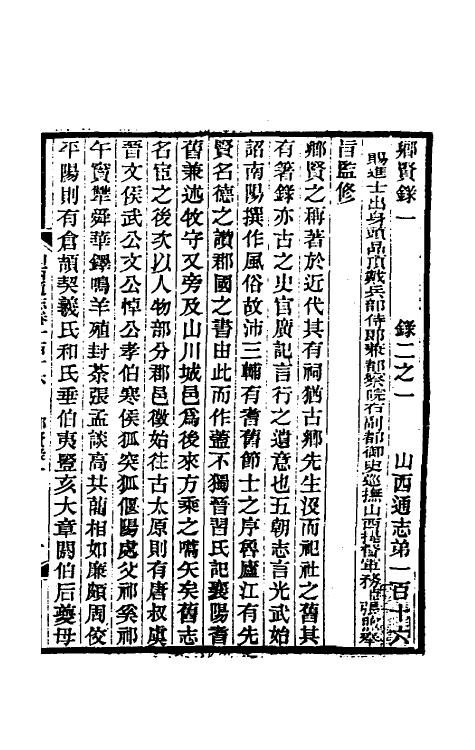 鄉賢錄一　錄二之一　山西通志第一百十六
賜進士出身頭品頂戴兵部侍郎兼都察院右副都御史巡撫山西提督軍務張煦奉
旨監修
鄉賢之稱著於近代其有祠猶古鄉先生沒而祀社之舊其
有著錄亦古之史官廣記言行之遺意也五朝志言光武始
詔南陽撰作風俗故沛三輔有耆舊節士之序魯廬江有先
賢名德之讚郡國之書由此而作蓋不獨晉習氏記襄陽耆
舊兼述牧守又旁及山川城邑爲後來方乘之嚆矢矣舊志
名宦之後次以人物部分郡邑徵始往古太原則有唐叔虞
晉文侯武公文公悼公孝伯寒侯狐突狐偃陽處父祁奚祁
午竇犨舜華鐸鳴羊殖封荼張孟談高共藺相如廉頗周佼
平陽則有倉頡契羲氏和氏垂伯夷豎亥大章閼伯后夔母